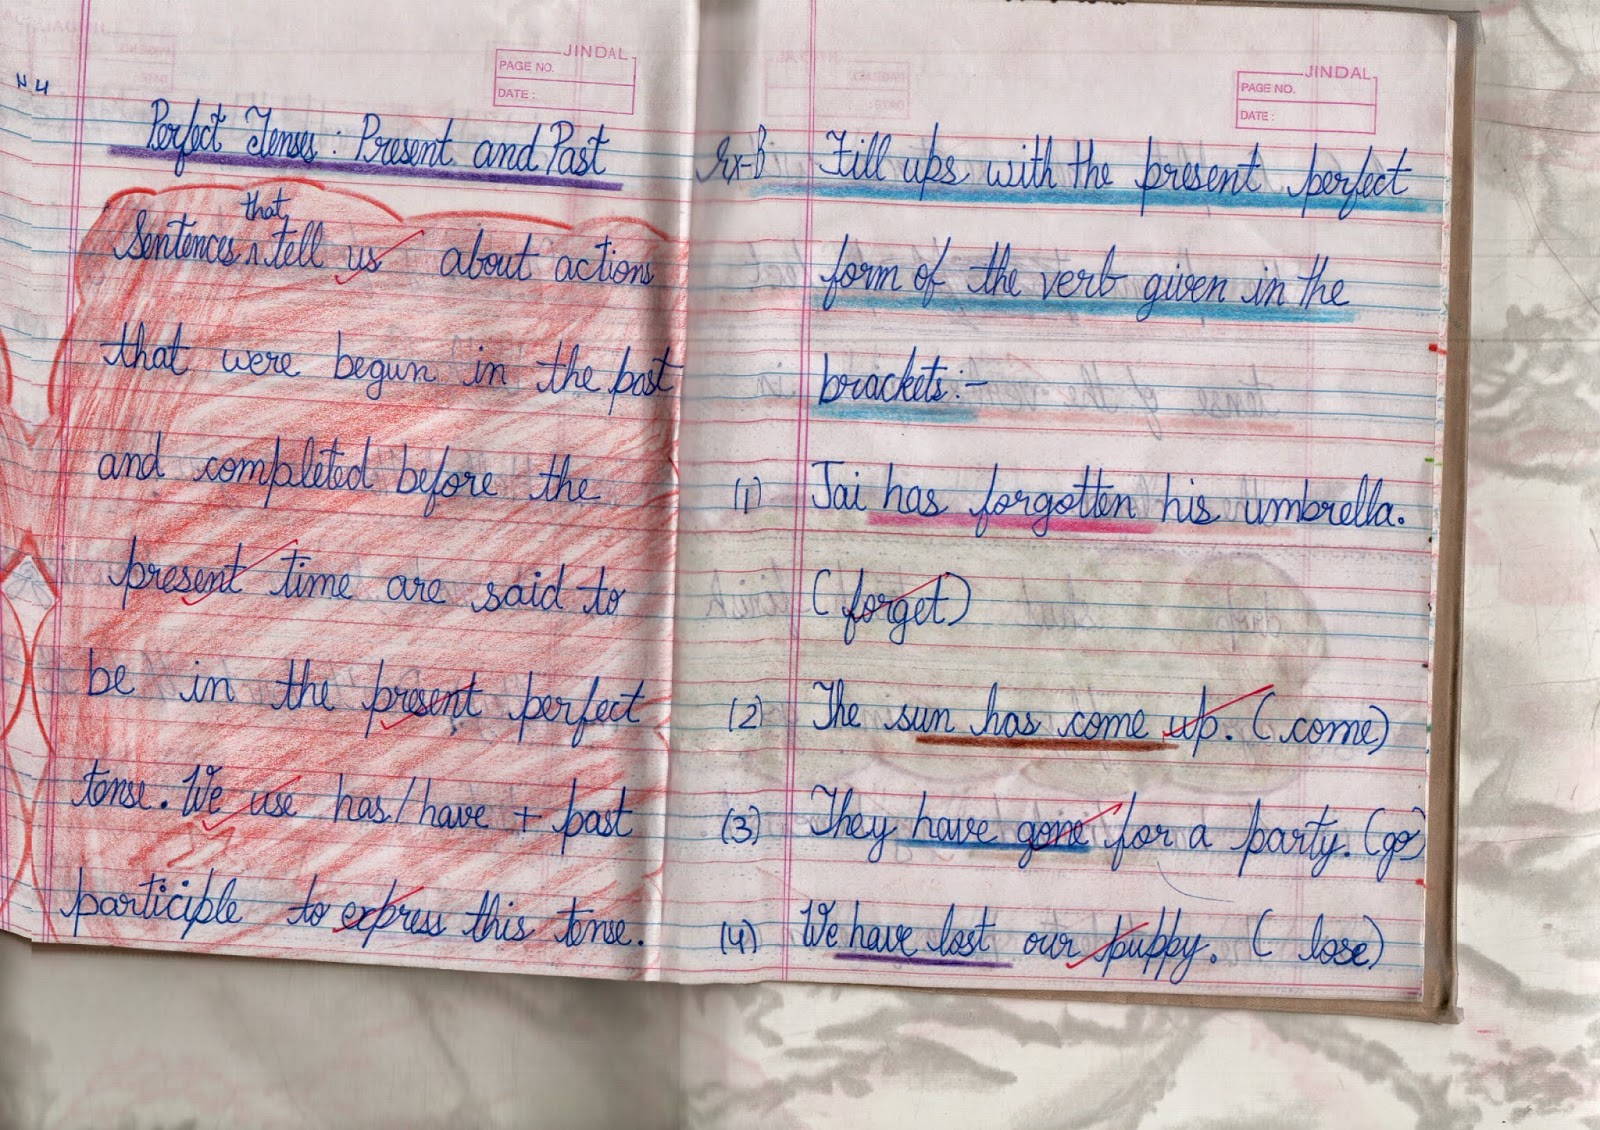 N 4
JINDAL
PAGE NO.
DATE :
Perfect Tenses : Present and Past
that
Sentences ^ tell us about actions
that were begun in the past
and completed before the
present time are said to
be in the present perfect
tense. We use has/have + past
participle to express this tense.
JINDAL
PAGE NO.
DATE :
Ex-B Fill ups with the present perfect
form of the verb given in the
brackets:-
(1) Jai has forgotten his umbrella.
(forget)
(2) The sun has come up. (come)
(3) They have gone for a party. (go)
(4) We have lost our puppy. (lose)